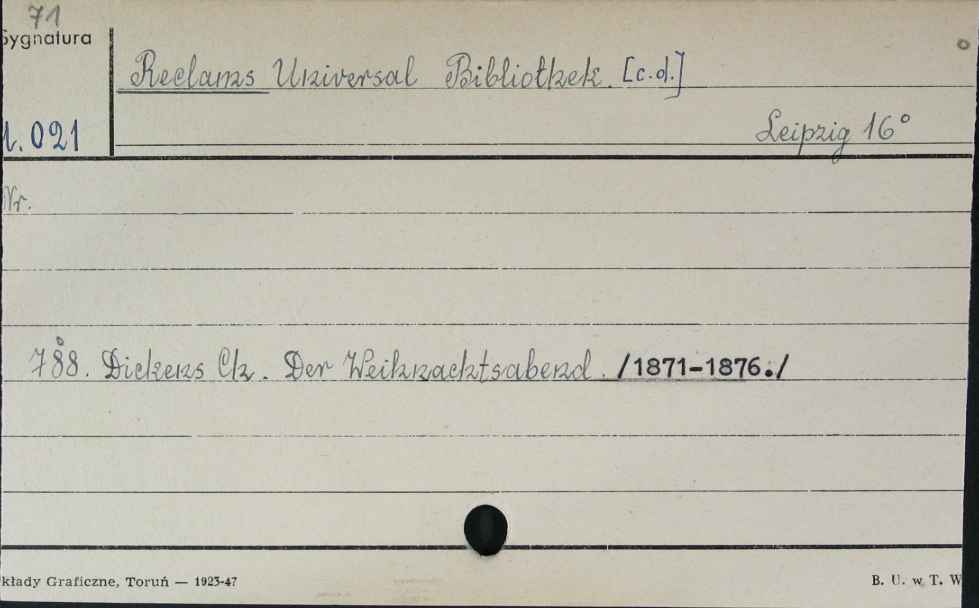 71
Sygnatura
Reclams Universal Bibliothek. [c.d.]
1.021
Leipzig 16°
Nr.
788. Dickens Ch. Der Weihnachtsabend. /1871-1876./
kłady Graficzne, Toruń — 1923-47
B. U. w T. W